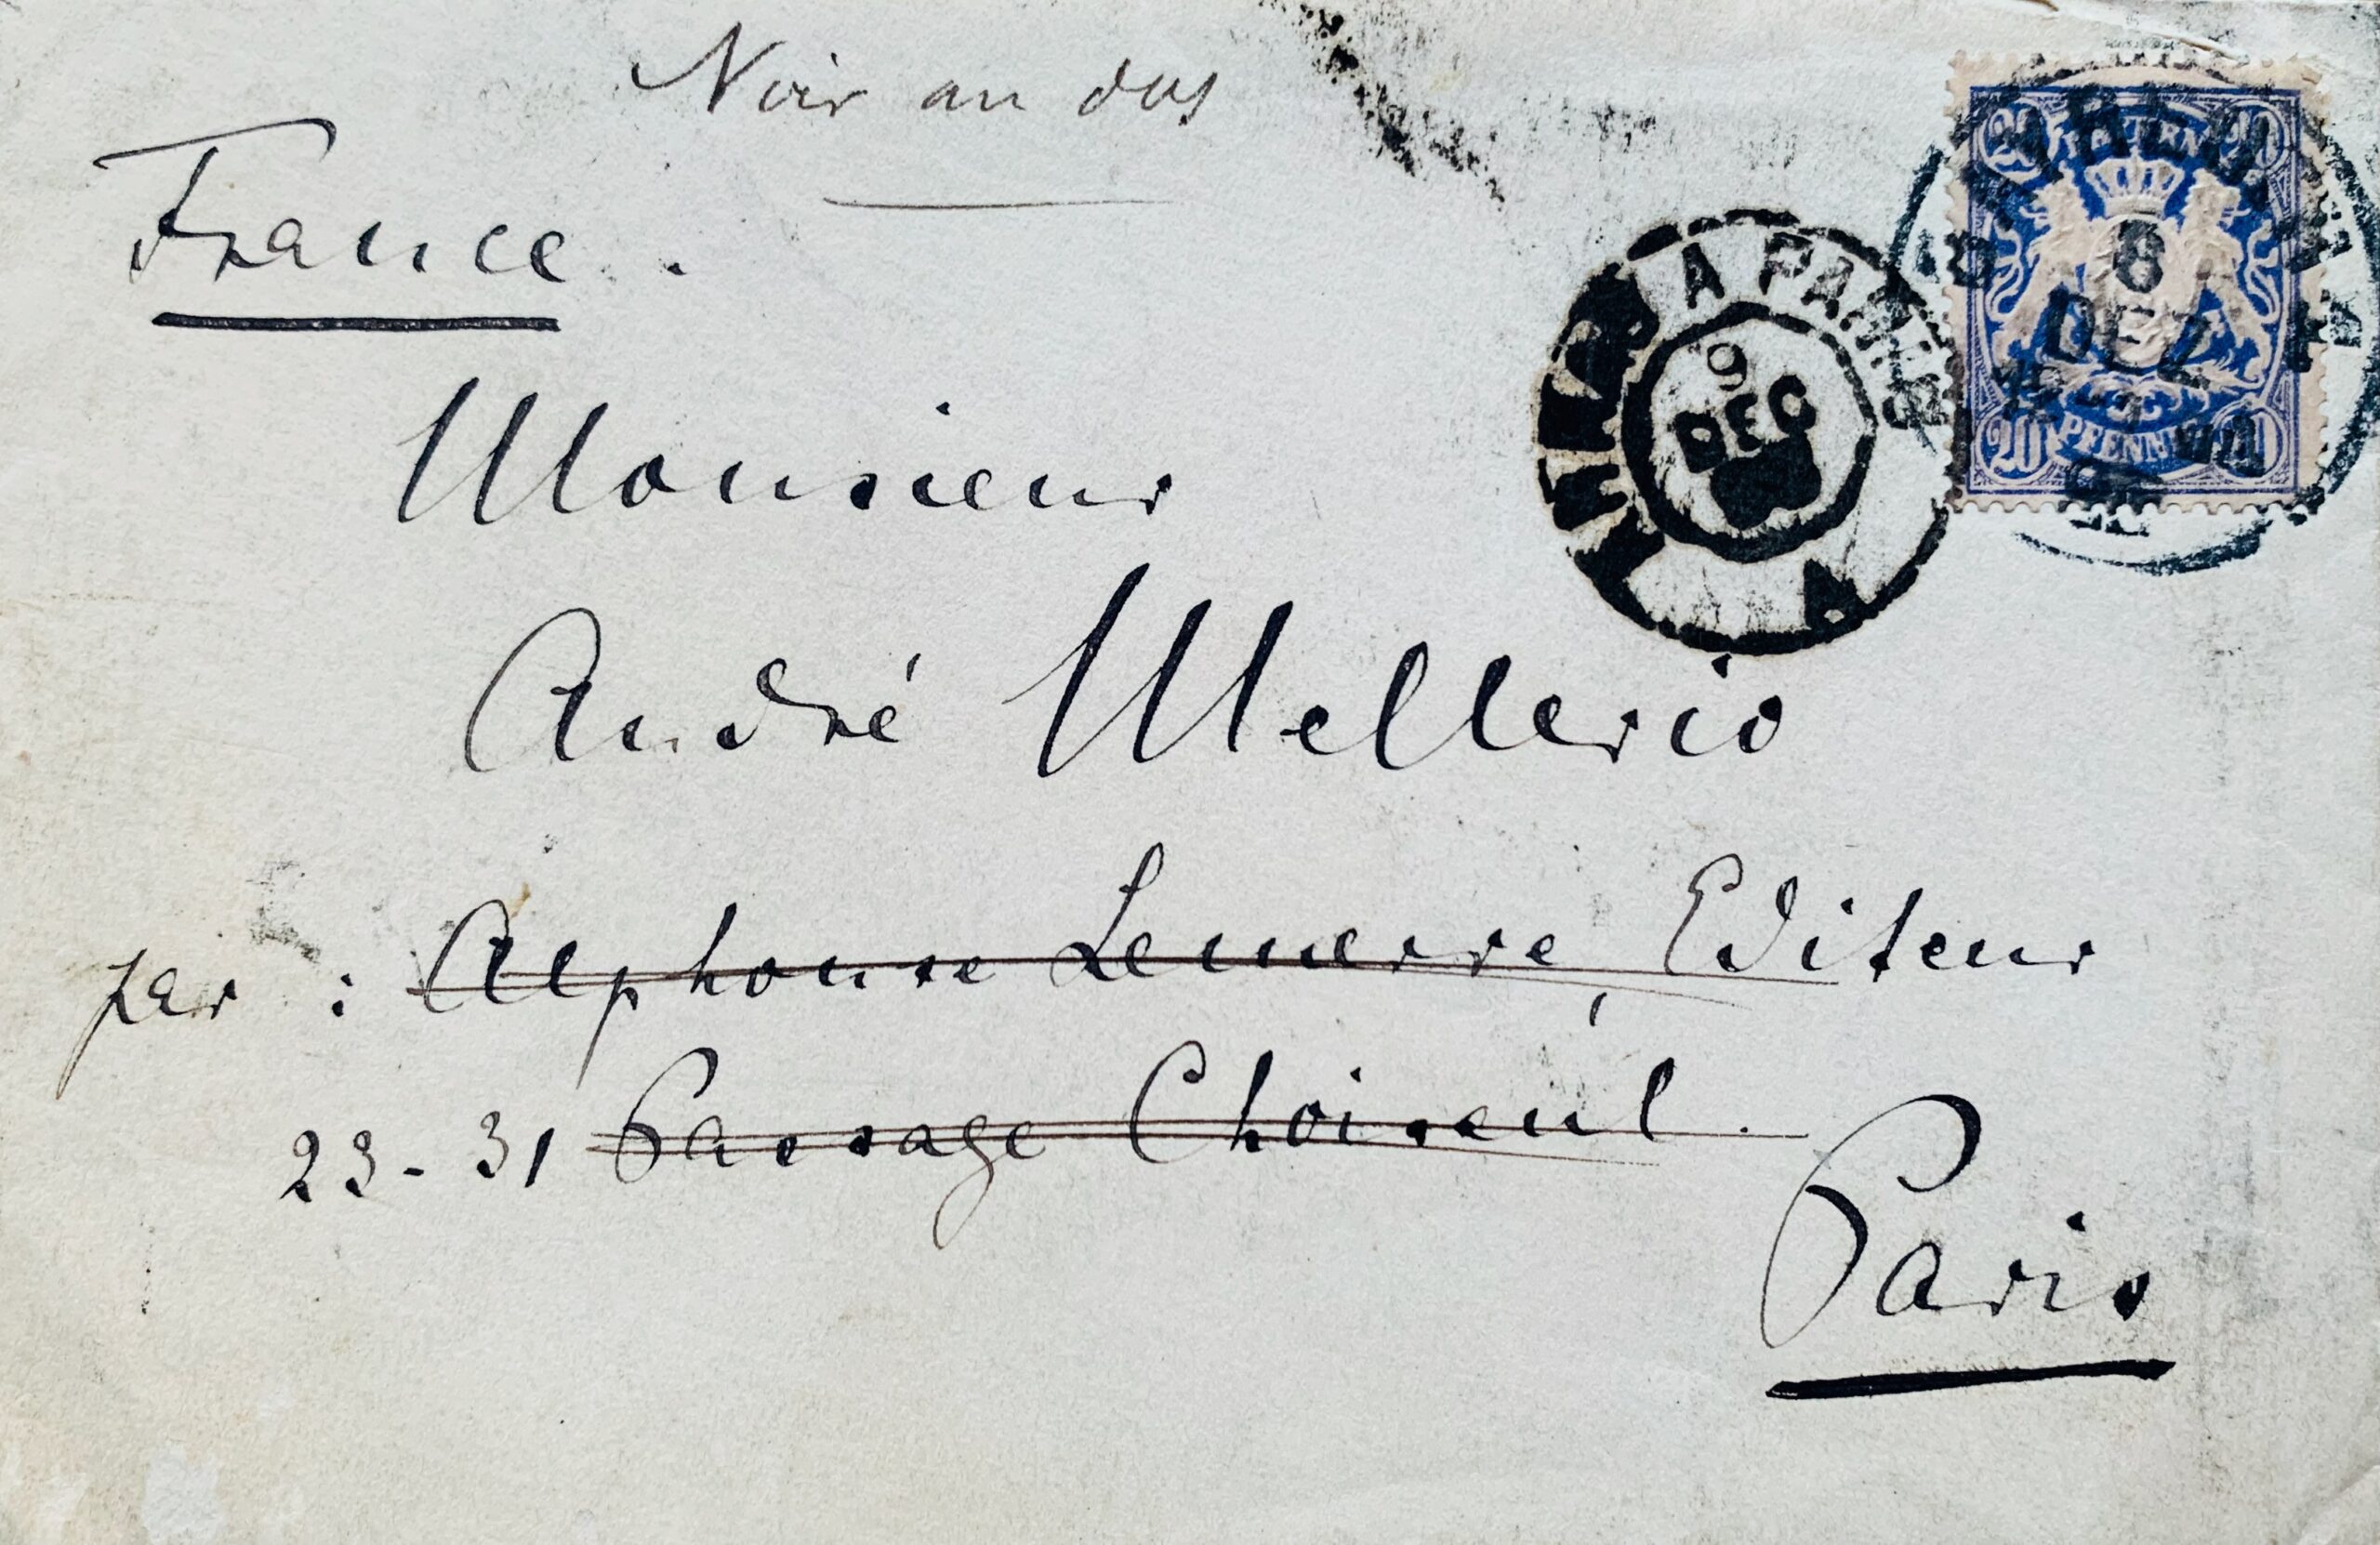 Voir au dos
France.
Monsieur
André Mellerio
par : Alphonse Lemerre, Editeur
23-31 Passage Choiseul.
Paris
A PARIS
9
DEC
BAYREUTH
8
DEZ
BAYERN
20 20
20 PFENNIG 20